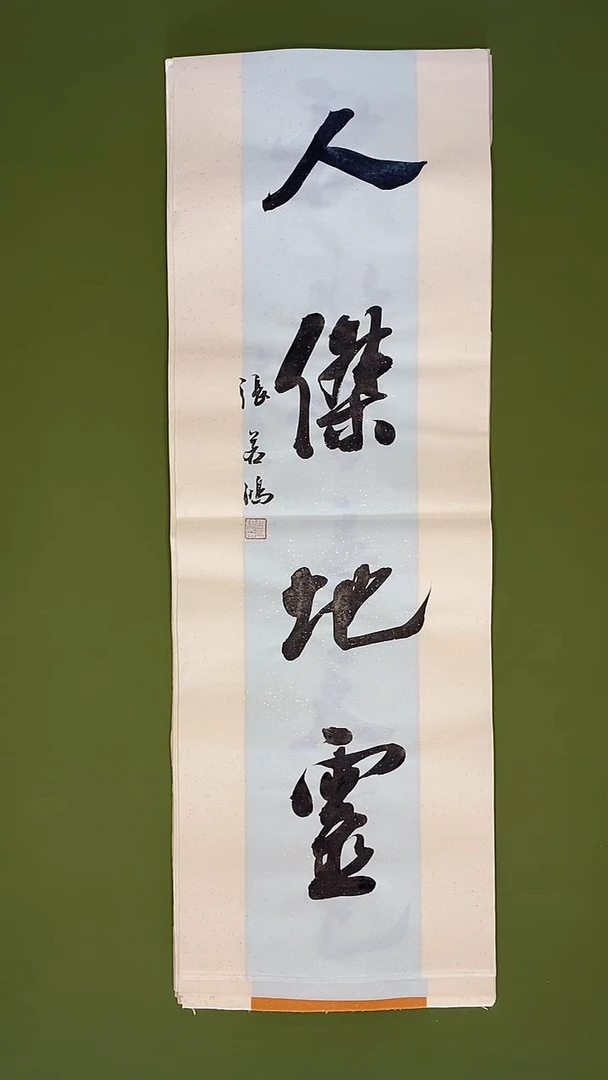 人傑地靈
張若鴻